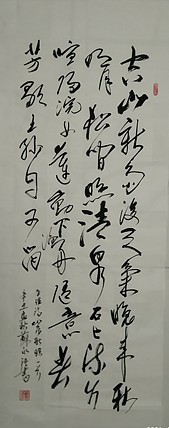 空山新雨後天氣晚来秋
明月松間照清泉石上流竹
喧歸浣女蓮動下漁舟隨意春
芳歇王孫自可留
王維詩山居秋暝一首